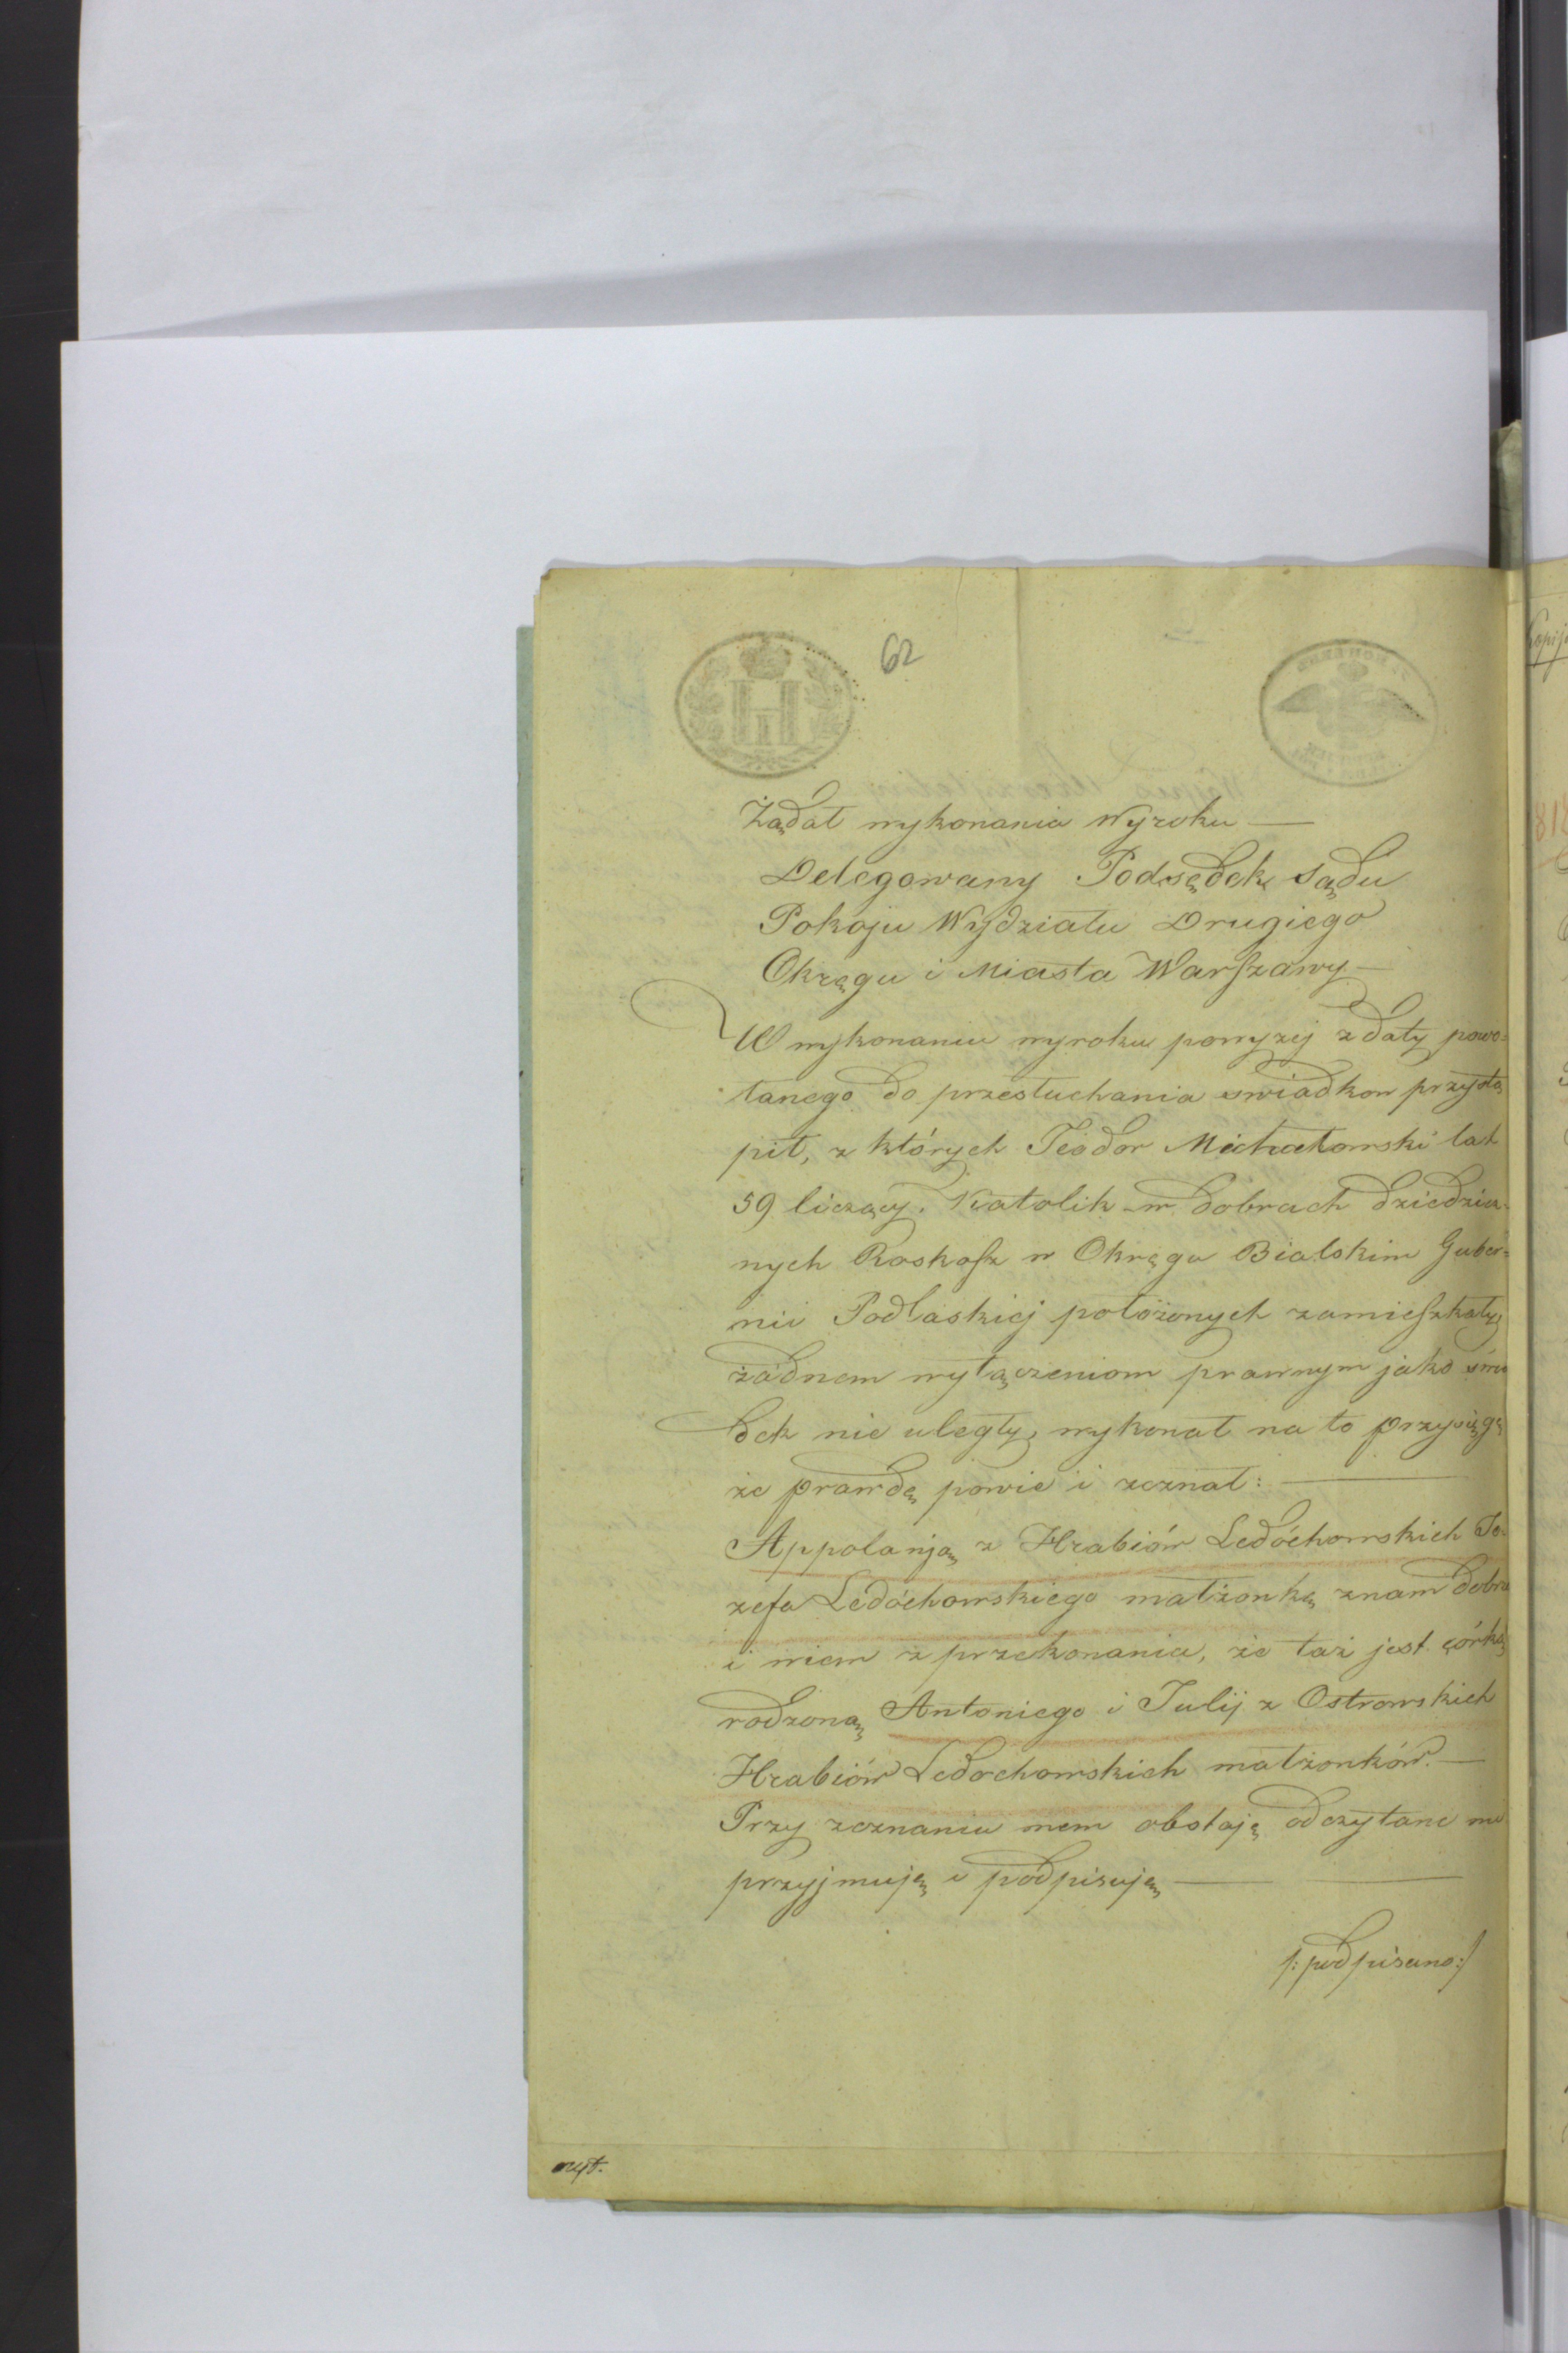 62
Żądał wykonania Wyroku —
Delegowany Podsędek Sądu
Pokoju Wydziału Drugiego
Okręgu i Miasta Warszawy —
W wykonaniu wyroku powyzej z daty powo=
łanego do przesłuchania swiadkow przystą
pił, z których Teodor Michałowski lat
59 liczący. Katolik w dobrach dziedzicz=
nych Roskosz w Okręgu Bialskim Guber=
nii Podlaskiej położonych zamieszkały,
żadnem wyłączeniom prawnym jako świa
dek nie uległy, wykonał na to przysięgę
że prawdę powie i zeznał: —
Appolanją z Hrabiów Ledóchowskich Jo=
zefa Ledóchowskiego małżonkę znam dobrze
i wiem z przekonania, że taż jest córką
rodzoną Antoniego i Julij z Ostrowskich
Hrabiów Ledochowskich małżonków. —
Przy zeznaniu mem obstaję odczytane mi
przyjmuję i podpisuję — —
/: podpisano :/